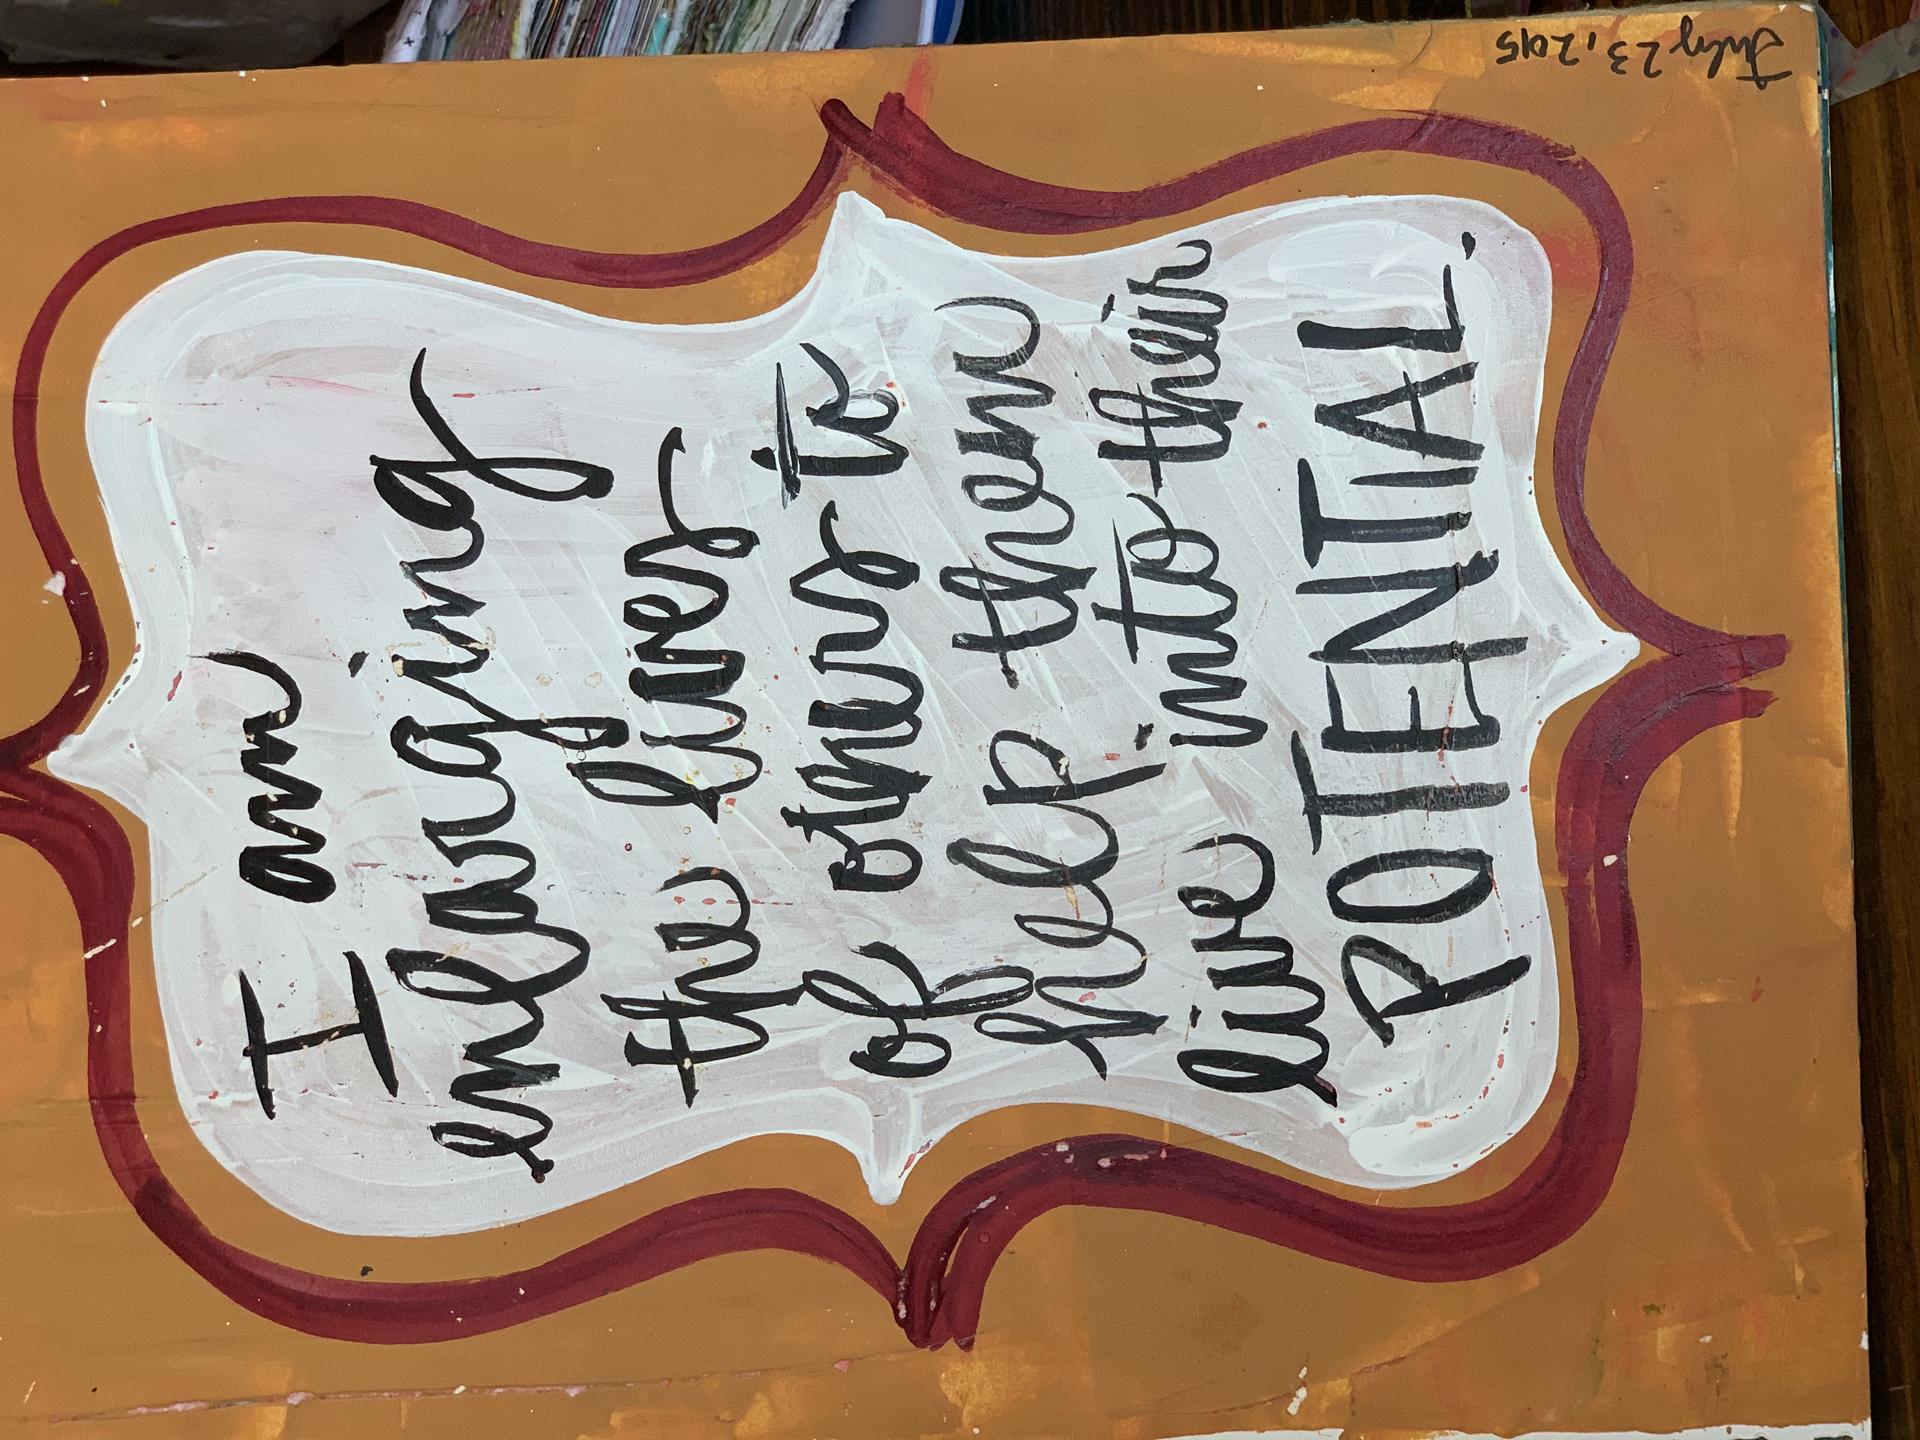 I am
enlarging
the lives
of others to
help them
live into their
POTENTIAL.
July 23, 2015